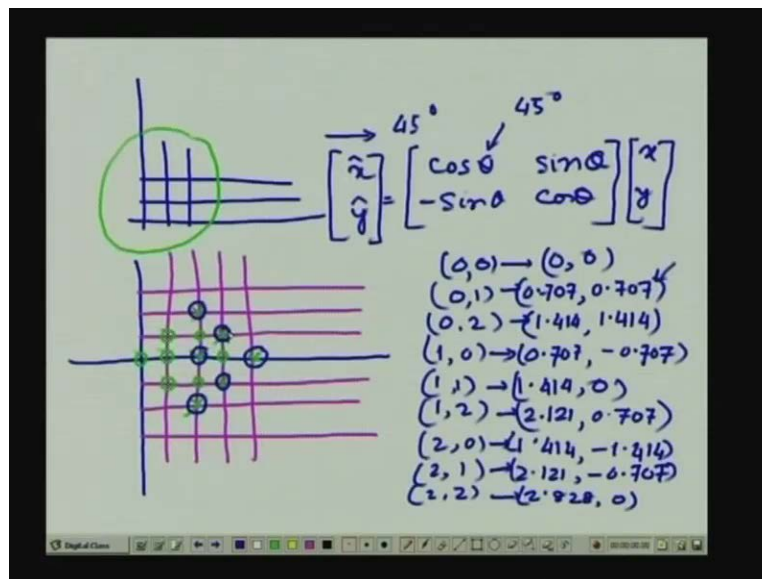 45° 45°
[x̂ ŷ] = [cosθ sinθ -sinθ cosθ] [x y]
(0,0) → (0, 0)
(0,1) → (0.707, 0.707)
(0,2) → (1.414, 1.414)
(1,0) → (0.707, -0.707)
(1,1) → (1.414, 0)
(1,2) → (2.121, 0.707)
(2,0) → (1.414, -1.414)
(2,1) → (2.121, -0.707)
(2,2) → (2.828, 0)
Digital Class